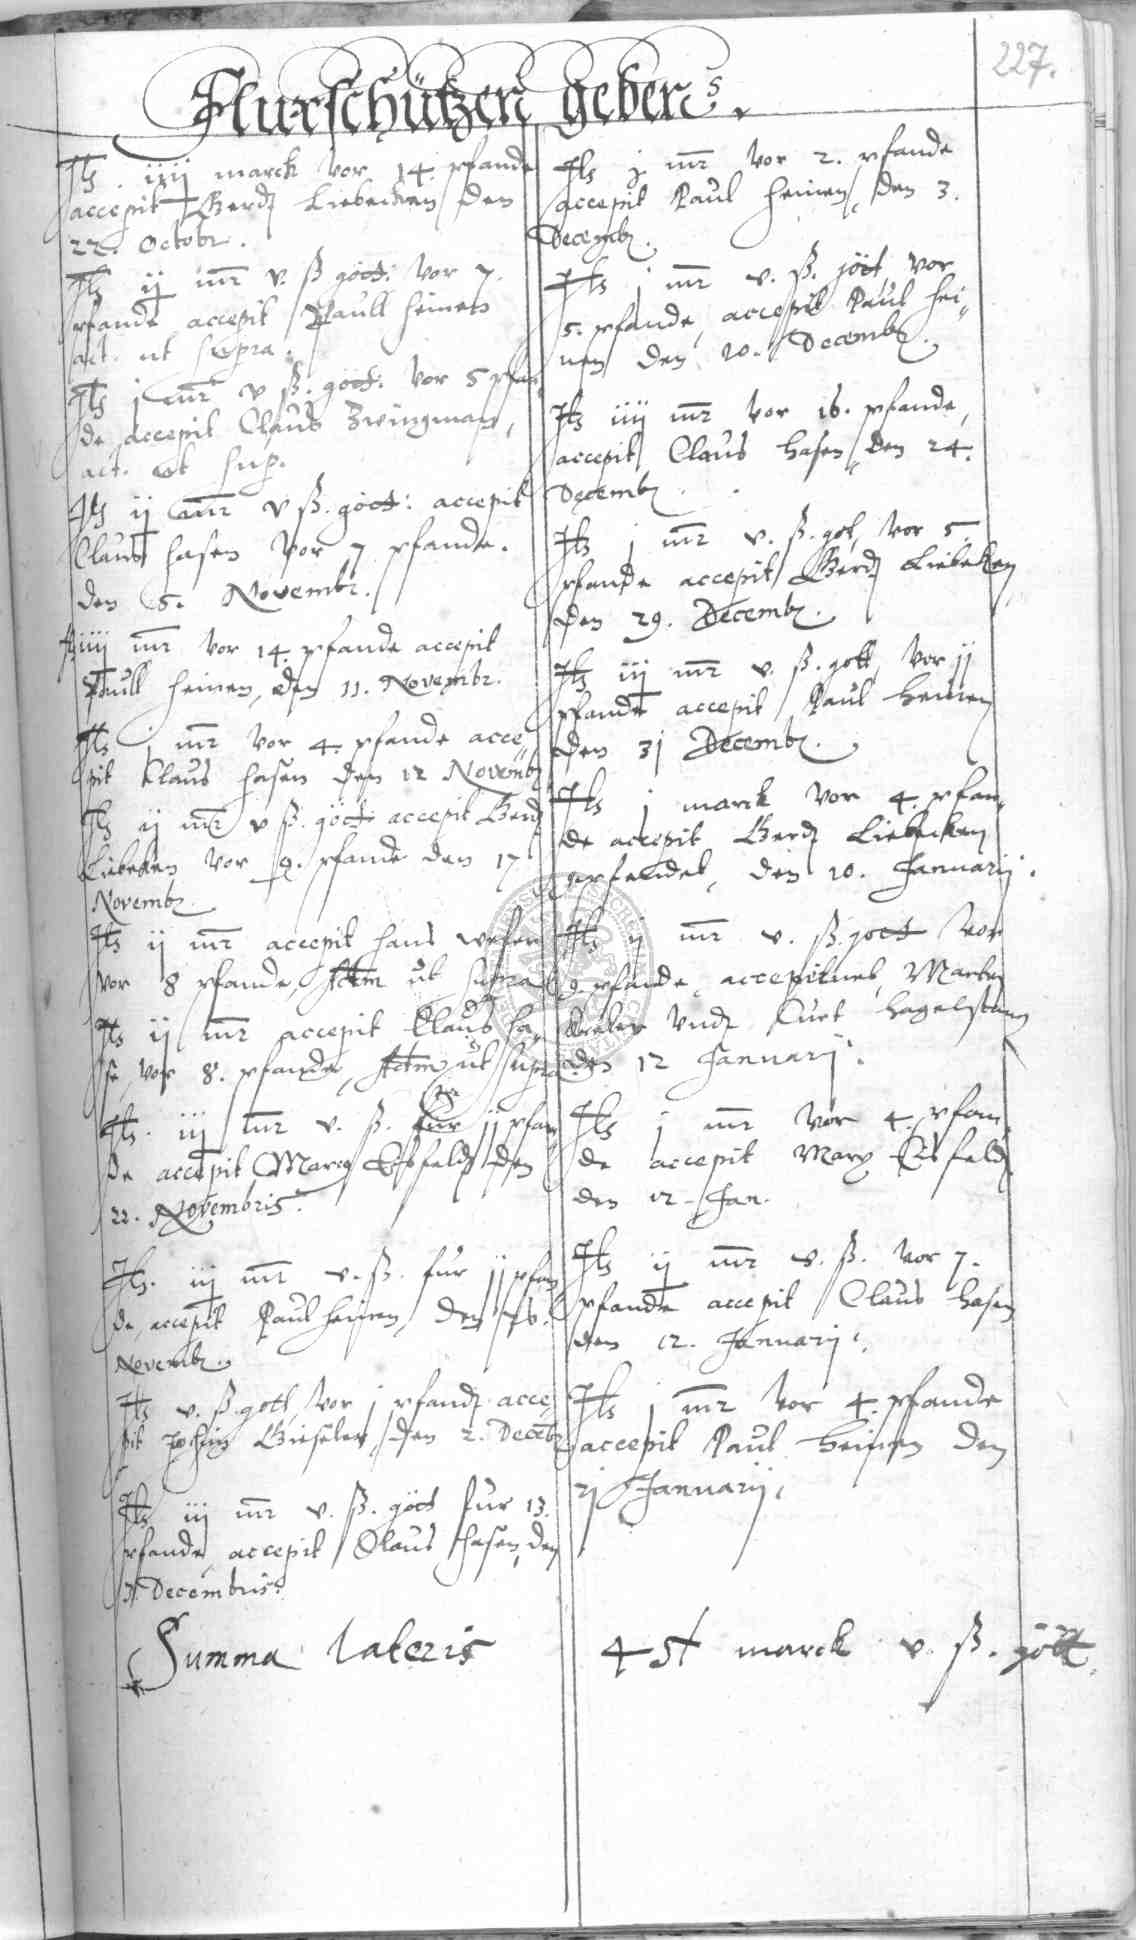 227.
Flurschützen geben.
Its. iiij marck vor 14. pfande
accepit Gerdt Liebecken den
22. Octobr.
Its ij mr v. ß gött: vor 7.
pfande accepit Paull heinen
act. ut supra.
Its j mr v ß. gött: vor 5 pfan
de accepit Claus Zwingman,
act. ut sup.
Its ij mr v ß. gött: accepit
Claus hasen vor 7 pfande.
den 5. Novembr.
Its iiij mr vor 14. pfande accepit
Paull heinen, den 11. Novembr.
Its j mr vor 4. pfande acce
pit Claus hasen den 12 Novemb
Its ij mr v ß. gött: accepit Gerdt
Liebeken vor 9. pfande den 17
Novemb.
Its ij mr accepit hans
vor 8 pfande, Actm ut supra
Its ij mr accepit Claus ha
se, vor 8. pfande, Actm ut supra
Its. iij mr v. ß. fur 11 pfan
de accepit Marx Eisfeldt den
22. Novembris.
Its. iij mr v. ß. fur 11 pfan
de, accepit Paul heinen, den
Novemb.
Its v. ß gott vor j pfandt acce
pit Jochim Gieseler, den 2. Decemb
Its iij mr v. ß. gött fur 13.
pfande accepit Claus hasen, den
Decembris.
Its j mr vor 2. pfande
accepit Paul heinen, den 3.
Decemb.
Its j mr v. ß. gött vor
5. pfande, accepit Paul hei
nen den 10. Decemb.
Its iiij mr vor 16. pfande,
accepit Claus hasen, den 24.
Decemb.
Its j mr v. ß. got, vor 5
pfande accepit Gerdt Liebeken
den 29. Decemb.
Its iij mr v. ß. gott vor 11
pfande accepit Paul heinen
den 31 Decemb.
Its j marck vor 4. pfan
de accepit Gerdt Liebecken
den 10. Januarij.
Its ij mr v. ß. gott vor
9. pfande, accepit Marten
vndt Curt hagelstang
den 12 Januarij.
Its j mr vor 4. pfan
de accepit Marx Eisfeldt
den 12. Jan.
Its ij mr v. ß. vor 7.
pfande accepit Claus hasen
den 12. Januarij.
Its j mr vor 4. pfande
accepit Paul heinen den
21 Januarij.
Summa lateris marck v. ß. gött.